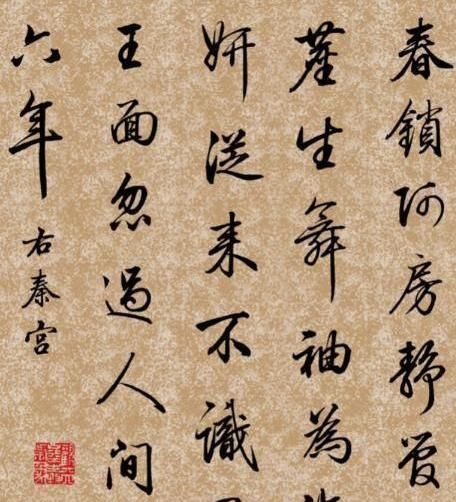 春鎖阿房静管
塵生舞袖為
妍從来不識
王面忽過人間
六年
右秦宫